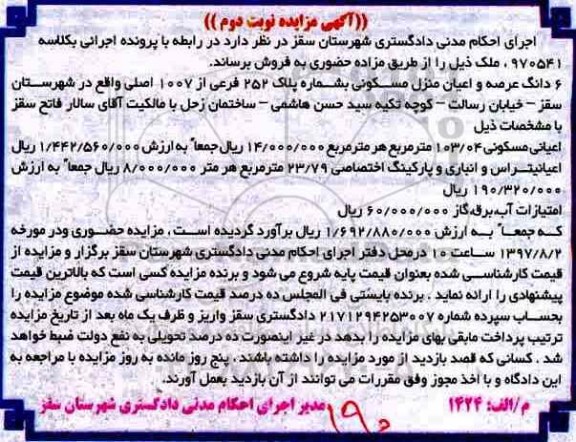 ((آگهی مزایده نوبت دوم ))
اجرای احکام مدنی دادگستری شهرستان سقز در نظر دارد در رابطه با پرونده اجرائی بکلاسه
۹۷۰۵۴۱ ، ملک ذیل را از طریق مزاده حضوری به فروش برساند.
۶ دانگ عرصه و اعیان منزل مسکونی بشماره پلاک ۲۵۲ فرعی از ۱۰۰۷ اصلی واقع در شهرستان
سقز – خیابان رسالت – کوچه تکیه سید حسن هاشمی – ساختمان زحل با مالکیت آقای سالار فاتح سقز
با مشخصات ذیل
اعیانی مسکونی ۱۰۳/۰۴ مترمربع هر مترمربع ۱۴/۰۰۰/۰۰۰ ریال جمعاً به ارزش ۱/۴۴۲/۵۶۰/۰۰۰ ریال
اعیانیتراس و انباری و پارکینگ اختصاصی ۲۳/۷۹ مترمربع هر متر ۸/۰۰۰/۰۰۰ ریال جمعاً به ارزش
۱۹۰/۳۲۰/۰۰۰ ریال
امتیازات آب،برق،گاز ۶۰/۰۰۰/۰۰۰ ریال
که جمعاً به ارزش ۱/۶۹۲/۸۸۰/۰۰۰ ریال برآورد گردیده است ، مزایده حضوری ودر مورخه
۱۳۹۷/۸/۲ ساعت ۱۰ درمحل دفتر اجرای احکام مدنی دادگستری شهرستان سقز برگزار و مزایده از
قیمت کارشناسی شده بعنوان قیمت پایه شروع می شود و برنده مزایده کسی است که بالاترین قیمت
پیشنهادی را ارائه نماید . برنده بایستی فی المجلس ده درصد قیمت کارشناسی شده موضوع مزایده را
بحساب سپرده شماره ۲۱۷۱۲۹۴۲۵۳۰۰۷ دادگستری سقز واریز و ظرف یک ماه بعد از تاریخ مزایده
ترتیب پرداخت مابقی بهای مزایده را بدهد در غیر اینصورت ده درصد تحویلی به نفع دولت ضبط خواهد
شد . کسانی که قصد بازدید از مورد مزایده را داشته باشند ، پنج روز مانده به روز مزایده با مراجعه به
این دادگاه و با اخذ مجوز وفق مقررات می توانند از آن بازدید بعمل آورند.
م/الف: ۱۴۲۴ مدیر اجرای احکام مدنی دادگستری شهرستان سقز